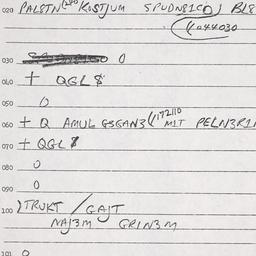 020 PAL8TN (280 KOSTJUM SPUDN81CD) BL8
(1044030
030 0
040 + QGL $
050 0
060 + Q AMUL GSGAN3 (172110 M1T PELN3R1
070 + QGL $
080 0
090 0
100 )TRUKT / GAJT
NAJ3M GRIN3M
101 0